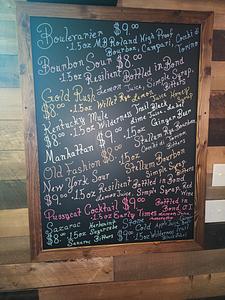 Boulevarier $9.00
1.5oz MB Roland High Proof
Bourbon, Campari, Cocchi di Torino
Bourbon Sour $8.00
1.5oz Resilient Bottled in Bond
Lemon Juice, Simple Syrup, Bitters
Gold Rush
$8.00 1.5oz Willet Rye Lemon Juice Honey Syrup
Kentucky Mule
$8.00 1.5oz Wilderness Trail Black Label
Lime Juice, Ginger Beer
Manhattan $9.00
1.5oz Stellum Rye Bourbon
Cocchi di Torino
Old Fashion $8.00
1.5oz Stellum Bourbon
Simple Syrup
New York Sour
$9.00 1.5oz Resilient Bottled in Bond
Lemon Juice, Simple Syrup, Red Wine
Pussycat Cocktail $9.00
1.5oz Early Times Bottled in Bond
Sazarac
$8.00 1.5oz Sugarcube
Bitters
Stone